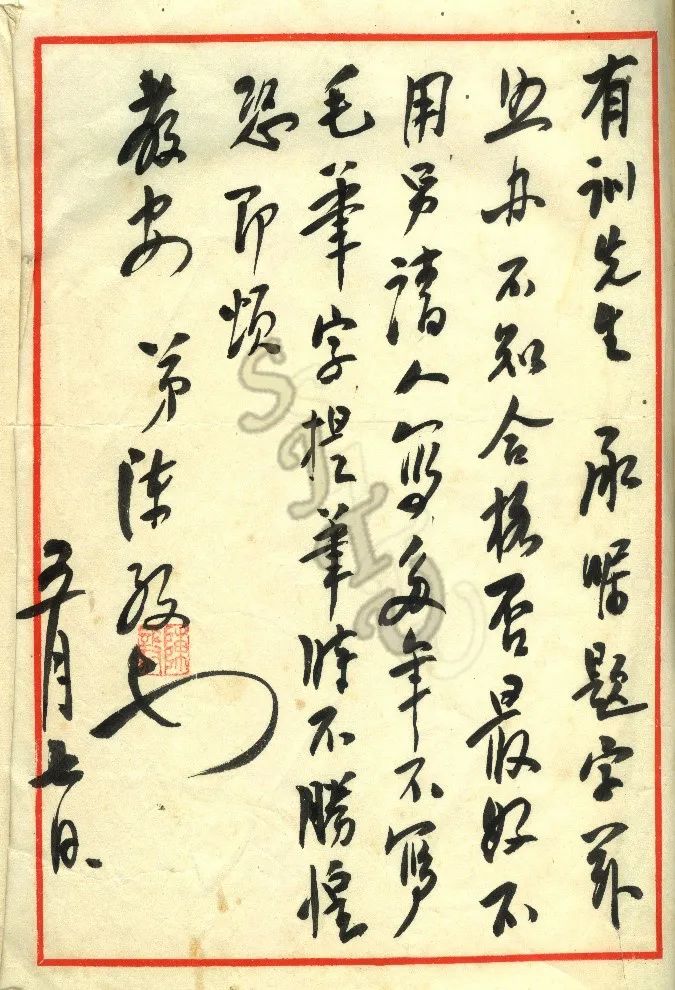 有訓先生 承嘱題字
办不知合格否最好不
用另請人寫多年不寫
毛筆字提筆時不勝惶
恐即頌
教安 弟陳毅
五月七日
陳毅